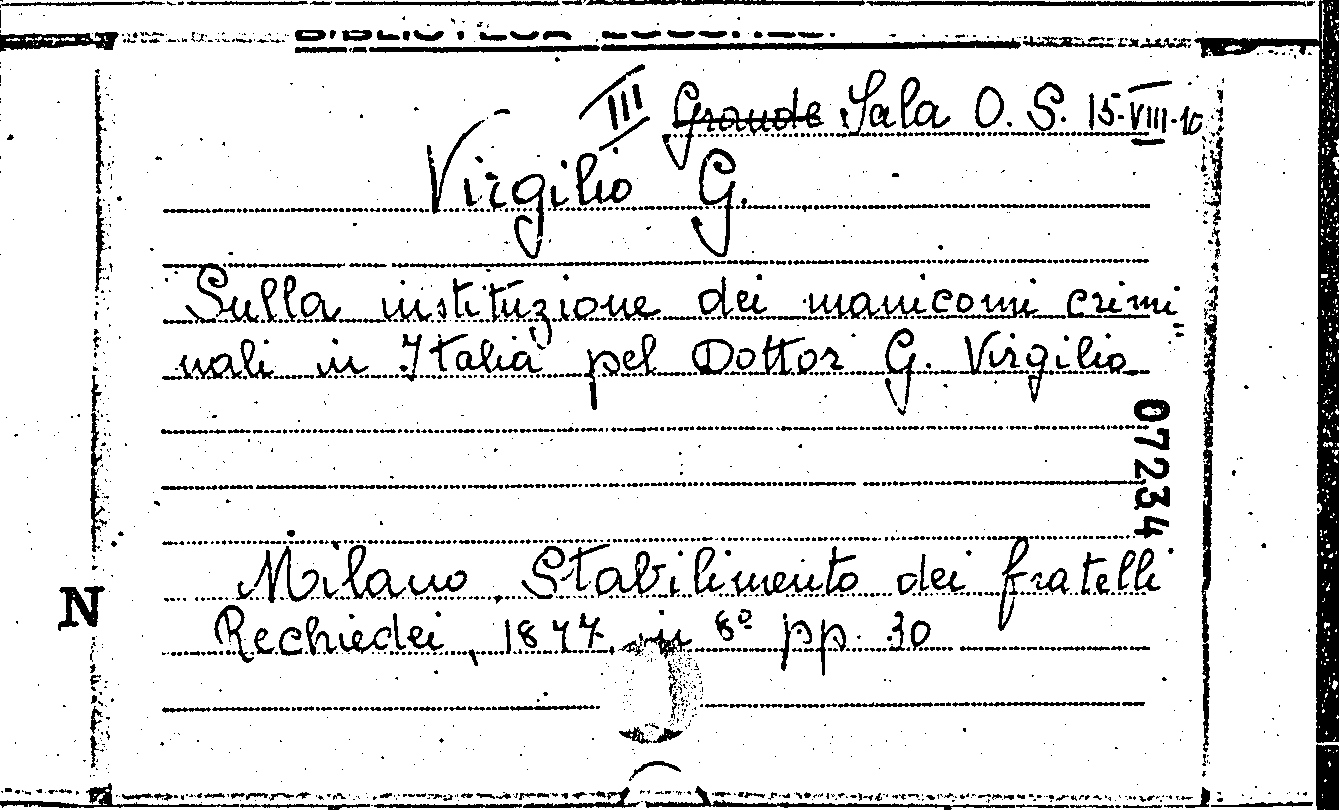 III Grande Sala O. S. 15-VIII-10
Virgilio G.
Sulla instituzione dei manicomi crimi
nali in Italia pel Dottor G. Virgilio
07234
Milano, Stabilimento dei fratelli
N
Rechiedei, 1877. in 8º pp. 30